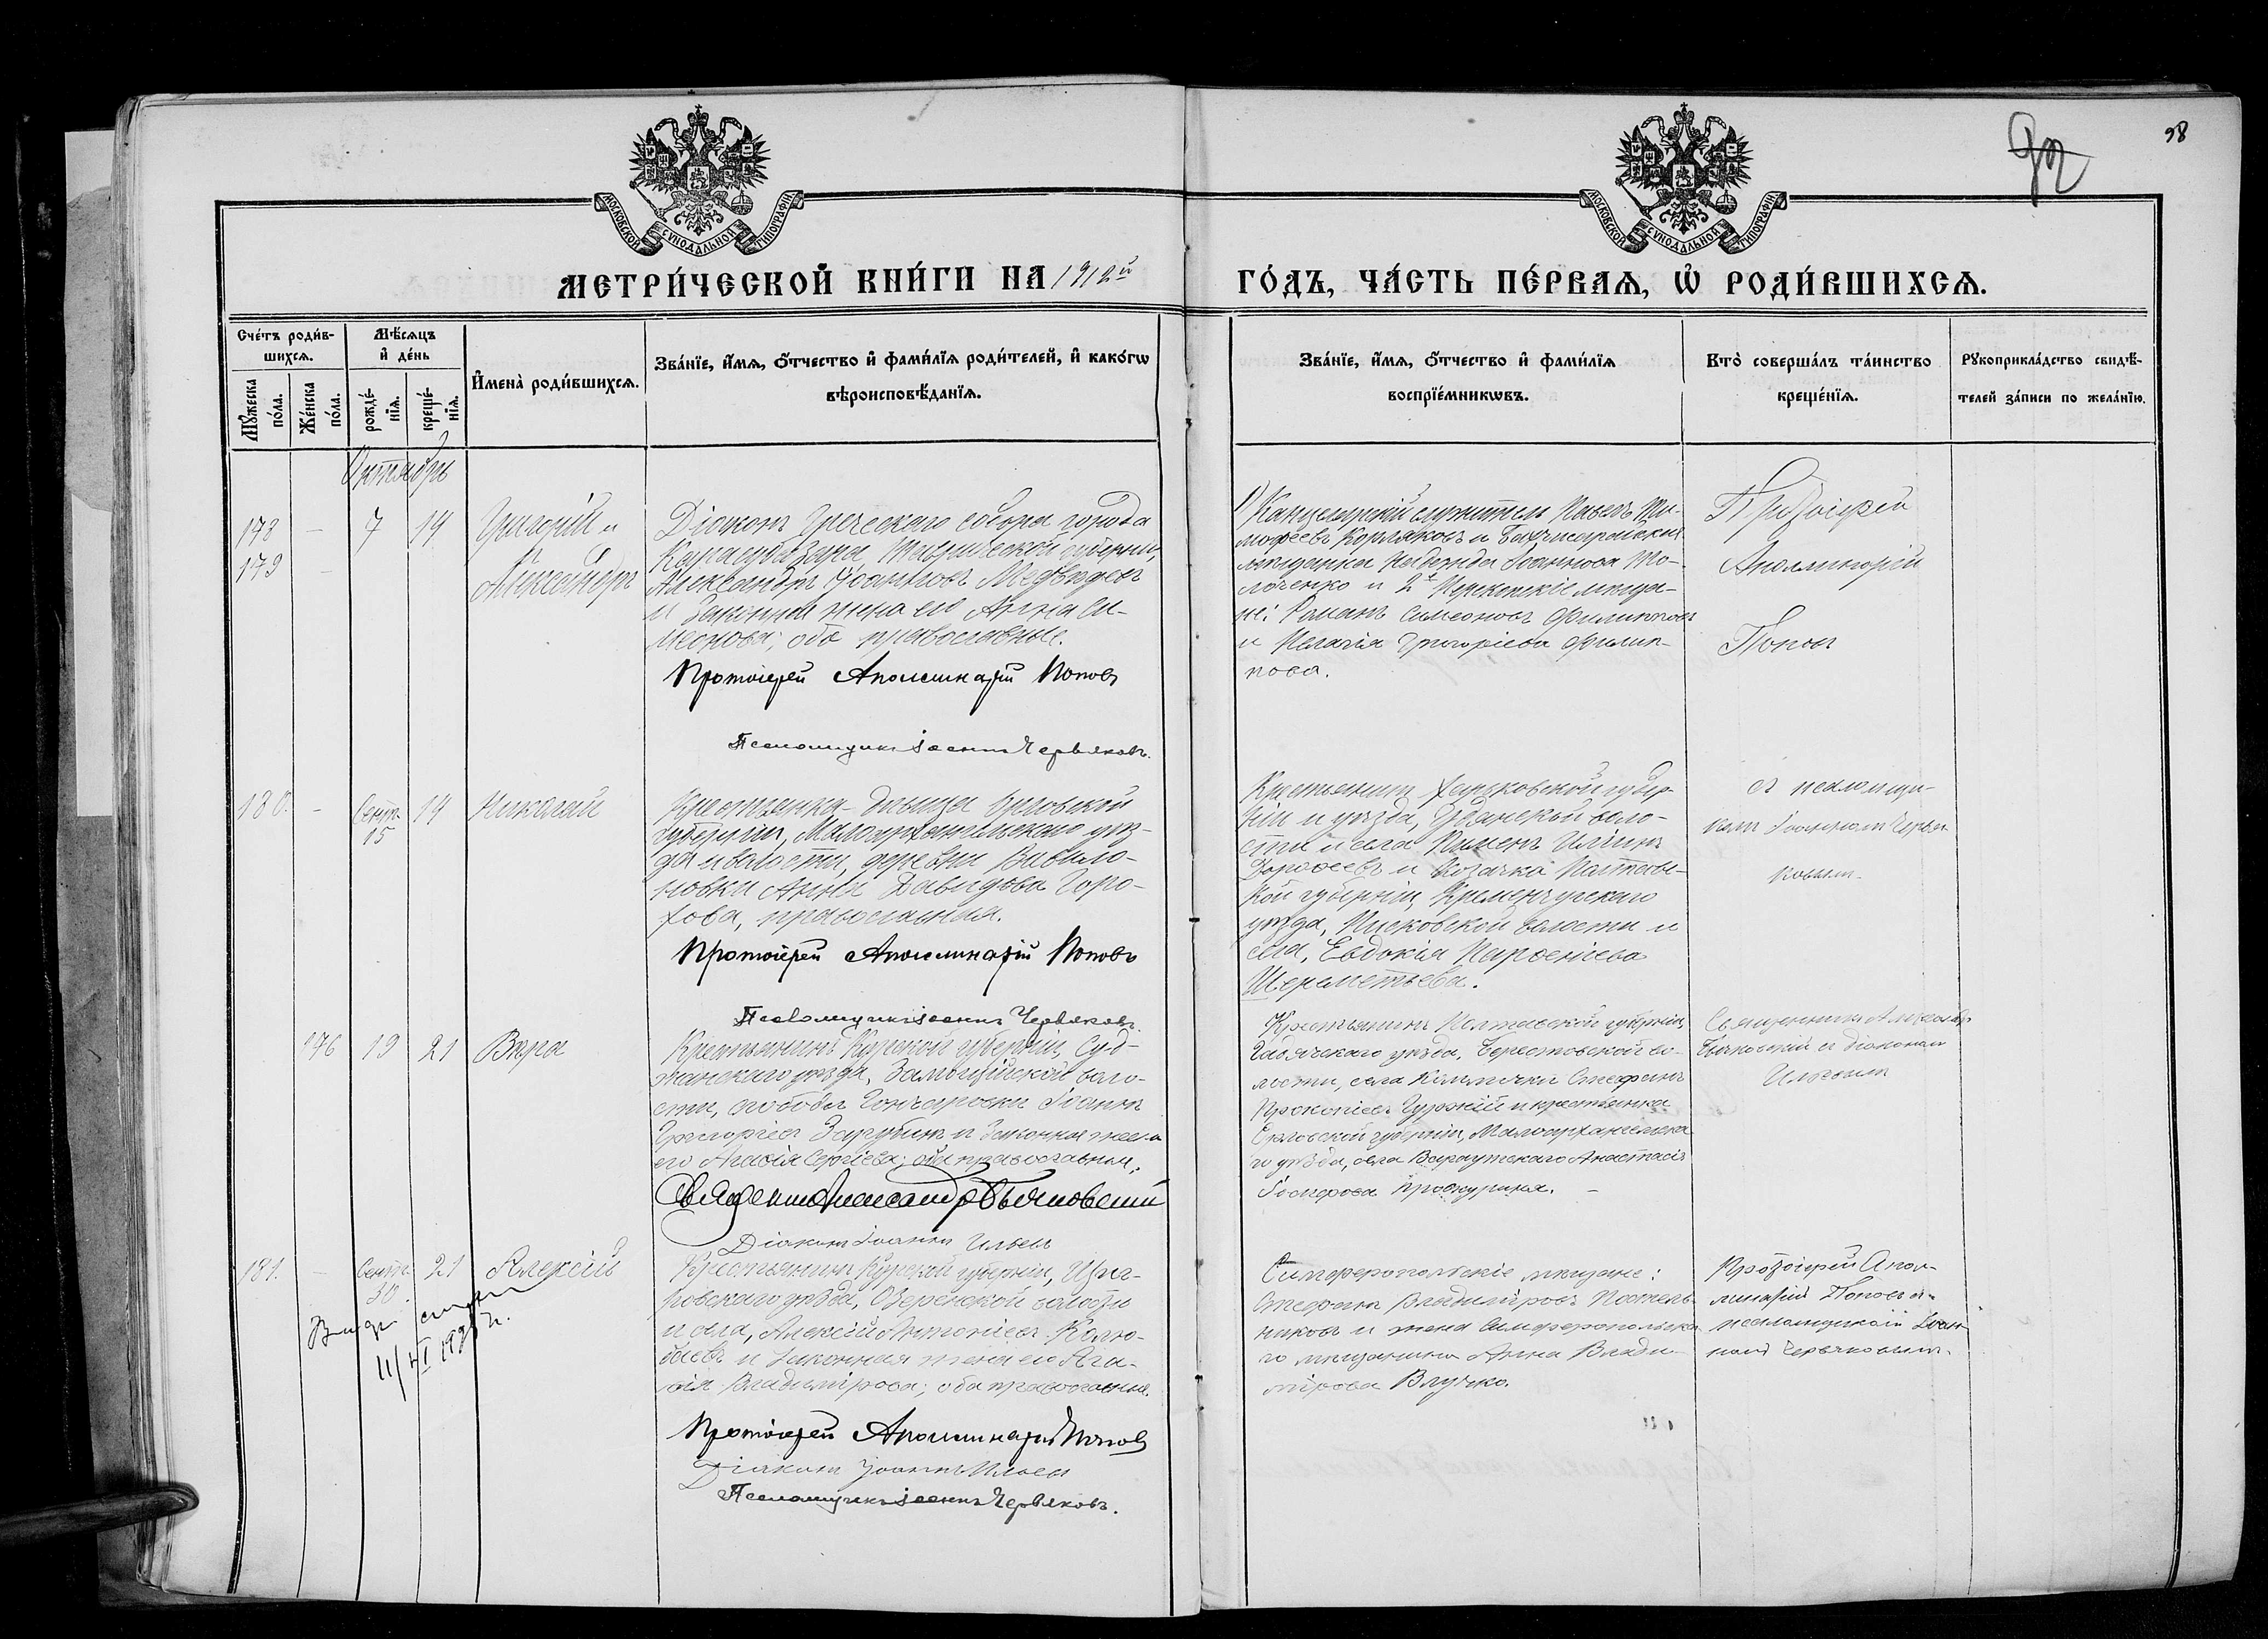 98
92
МОСКОВСКОЙ СѴНОДАЛЬНОЙ ТИПОГРАФІИ
МОСКОВСКОЙ СѴНОДАЛЬНОЙ ТИПОГРАФІИ
МЕТРИ́ЧЕСКОЙ КНИ́ГИ НА 1912й ГО́ДЪ, ЧА́СТЬ ПЕ́РВАѦ, Ѽ РОДИ́ВШИХСѦ.
Сче́тъ роди́в-
шихсѧ.
Мꙋ́жеска по́ла.
Же́нска по́ла.
Мѣ́сѧцъ
и҆ де́нь
рожде́-
нїѧ.
креще́-
нїѧ.
И҆мена̀ роди́вшихсѧ.
Зва́нїе, и҆́мѧ, ѻ҆́тчество и҆ фами́лїѧ роди́телей, и҆ како́гѡ
вѣроисповѣ́данїѧ.
Зва́нїе, и҆́мѧ, ѻ҆́тчество и҆ фами́лїѧ
воспрїе́мникѡвъ.
Кто̀ соверша́лъ та́инство
креще́нїѧ.
Рꙋкоприкла́дство свидѣ́-
телей за́писи по жела́нїю.
Октябрь
178
179
-
7
14
Григорій и
Александръ
Діаконъ Греческаго собора города
Карасубазара, Таврической губерніи,
Александръ Іоанновъ Медвѣдевъ
и законная жена его Анна Си-
меонова; оба православные.
Протоіерей Аполлинарій Поповъ
Псаломщикъ Іоаннъ Червяковъ.
1) Канцелярскій служитель Павелъ Ти-
мофеевъ Корпяковъ и Бахчисарайская
мѣщанка Надежда Іоаннова То-
лоченко и 2хъ Перекопскіе мѣща-
не: Романъ Симеоновъ Филипповъ
и Пелагія Григоріева Филип-
пова.
Протоіерей
Аполлинарій
Поповъ
180.
-
Сент.
15
14
Николай
Крестьянка-дѣвица Орловской
губерніи, Малоархангельскаго уѣз-
да и волости, деревни Вавило-
новки Анна Давидова Горо-
хова, православная.
Протоіерей Аполлинарій Поповъ
Псаломщикъ Іоаннъ Червяковъ.
Крестьянинъ Харьковской губер-
ніи и уѣзда, воло-
сти и села Пименъ Ильинъ
Дорофеевъ и козачка Полтавс-
кой губерніи, Кременчугскаго
уѣзда, Песковской волости и
села, Евдокія Парѳеніева
Шереметьева.
съ псаломщи-
комъ Іоанномъ Червя-
ковымъ.
146
19
21
Вѣра
Крестьянинъ Курской губерніи, Суд-
жанскаго уѣзда, Замостянской воло-
сти, слободы Гончаровки Іоаннъ
Григоріевъ Зарубинъ и законная жена
его Агафія Сергіева; оба православные.
Священникъ Александръ
Діаконъ Іоаннъ Ильевъ
Крестьянинъ Полтавской губерніи,
Гадячскаго уѣзда, Берестовской во-
лости, села Стефанъ
Прокопіевъ Гуржій и крестьянка
Орловской губерніи, Малоархангельска-
го уѣзда, села Анастасія
Іосифова Проскурина. -
Священникъ Александръ
и діаконъ
Ильевымъ
181.
-
Сент.
30.
21
Алексій
Крестьянинъ Курской губерніи, Щиг-
ровскаго уѣзда, Озеренской волости
и села, Алексій Антоніевъ
и законная жена его Ага-
фія Владимірова; оба православные.
Протоіерей Аполлинарій Поповъ
Діаконъ Іоаннъ Ильевъ
Псаломщикъ Іоаннъ Червяковъ.
Симферопольскіе мѣщане:
Стефанъ Владиміровъ Постель-
никовъ и жена Симферопольска-
го мѣщанина Анна Влади-
мірова
Протоіерей Апол-
линарій Поповъ съ
псаломщикомъ Іоан-
номъ Червяковымъ.